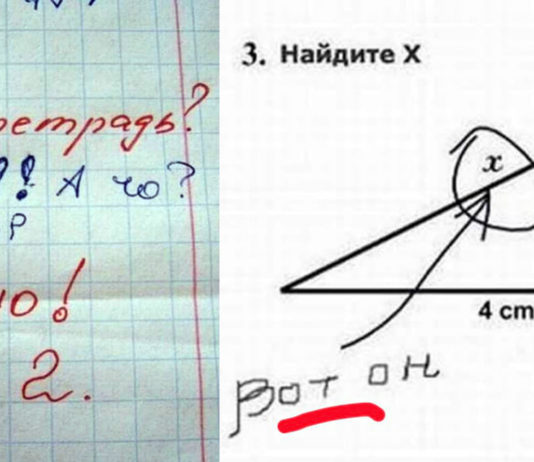 тетрадь?
?! А чо?
р
ю!
2.
3. Найдите X
x
4 cm
Вот он